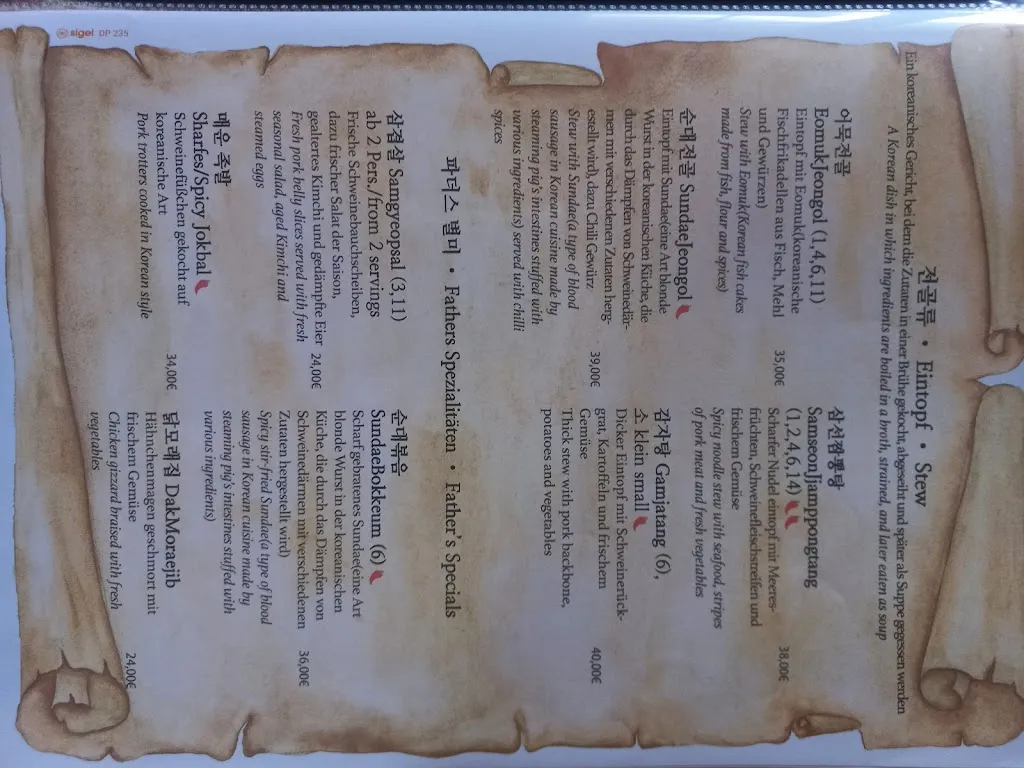 전골류 • Eintopf • Stew
Ein koreanisches Gericht, bei dem die Zutaten in einer Brühe gekocht, abgeseiht und später als Suppe gegessen werden
A Korean dish in which ingredients are boiled in a broth, strained, and later eaten as soup
어묵전골
EomukJeongol (1,4,6,11)
Eintopf mit Eomuk(koreanische
Fischfrikadellen aus Fisch, Mehl
und Gewürzen)
35,00€
Stew with Eomuk(Korean fish cakes
made from fish, flour and spices)
순대전골 SundaeJeongol
Eintopf mit Sundae(eine Art blonde
Wurst in der koreanischen Küche, die
durch das Dämpfen von Schweinedär-
men mit verschiedenen Zutaten herg-
estellt wird), dazu Chili Gewürz
39,00€
Stew with Sundae(a type of blood
sausage in Korean cuisine made by
steaming pig's intestines stuffed with
various ingredients) served with chilli
spices
삼선짬뽕탕
SamseonJjamppongtang
(1,2,4,6,14)
Scharfer Nudel eintopf mit Meeres-
früchten, Schweinefleischstreifen und
frischem Gemüse
38,00€
Spicy noodle stew with seafood, stripes
of pork meat and fresh vegetables
감자탕 Gamjatang (6),
소 klein small
Dicker Eintopf mit Schweinerück-
grat, Kartoffeln und frischem
Gemüse
40,00€
Thick stew with pork backbone,
potatoes and vegetables
파더스 별미 • Fathers Spezialitäten • Father's Specials
삼겹살 Samgyeopsal (3,11)
ab 2 Pers./from 2 servings
Frische Schweinebauchscheiben,
dazu frischer Salat der Saison,
gealtertes Kimchi und gedämpfte Eier 24,00€
Fresh pork belly slices served with fresh
seasonal salad, aged Kimchi and
steamed eggs
매운 족발
Sharfes/Spicy Jokbal
Schweinefüßchen gekocht auf
koreanische Art
34,00€
Pork trotters cooked in Korean style
순대볶음
SundaeBokkeum (6)
Scharf gebratenes Sundae(eine Art
blonde Wurst in der koreanischen
Küche, die durch das Dämpfen von
Schweinedärmen mit verschiedenen
Zutaten hergestellt wird)
36,00€
Spicy stir-fried Sundae(a type of blood
sausage in Korean cuisine made by
steaming pig's intestines stuffed with
various ingredients)
닭모래집 DakMoraejib
Hähnchenmagen geschmort mit
frischem Gemüse
24,00€
Chicken gizzard braised with fresh
vegetables
sigel DP 235